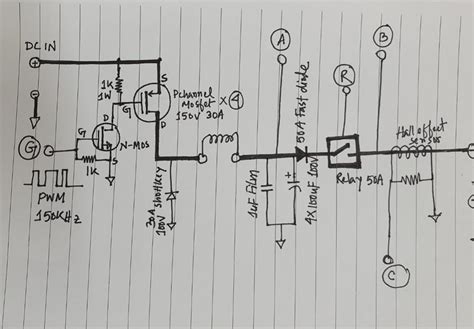 DC IN
+
-
G
PWM
150KHz
1K
1W
D
G
S
N-MOS
1K
S
G
D
Pchannel
Mosfet × 4
150V 30A
30A
100V shottkey
A
1uF Film
4X100uF 100V
50A Fast diode
R
Relay 50A
B
Hall effect
sensor
C